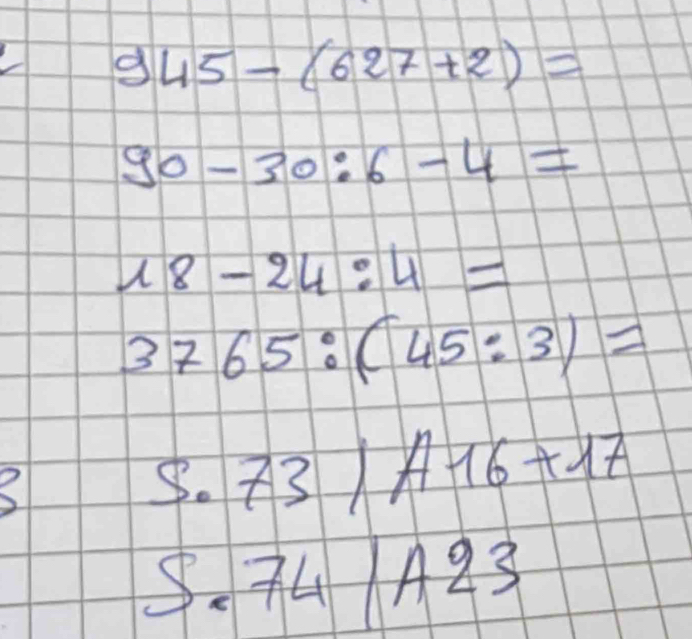 945 - (627 + 2) =
90 - 30 : 6 - 4 =
18 - 24 : 4 =
3765 : (45 : 3) =
S. 73 / A 16 + 17
S. 74 / A 23